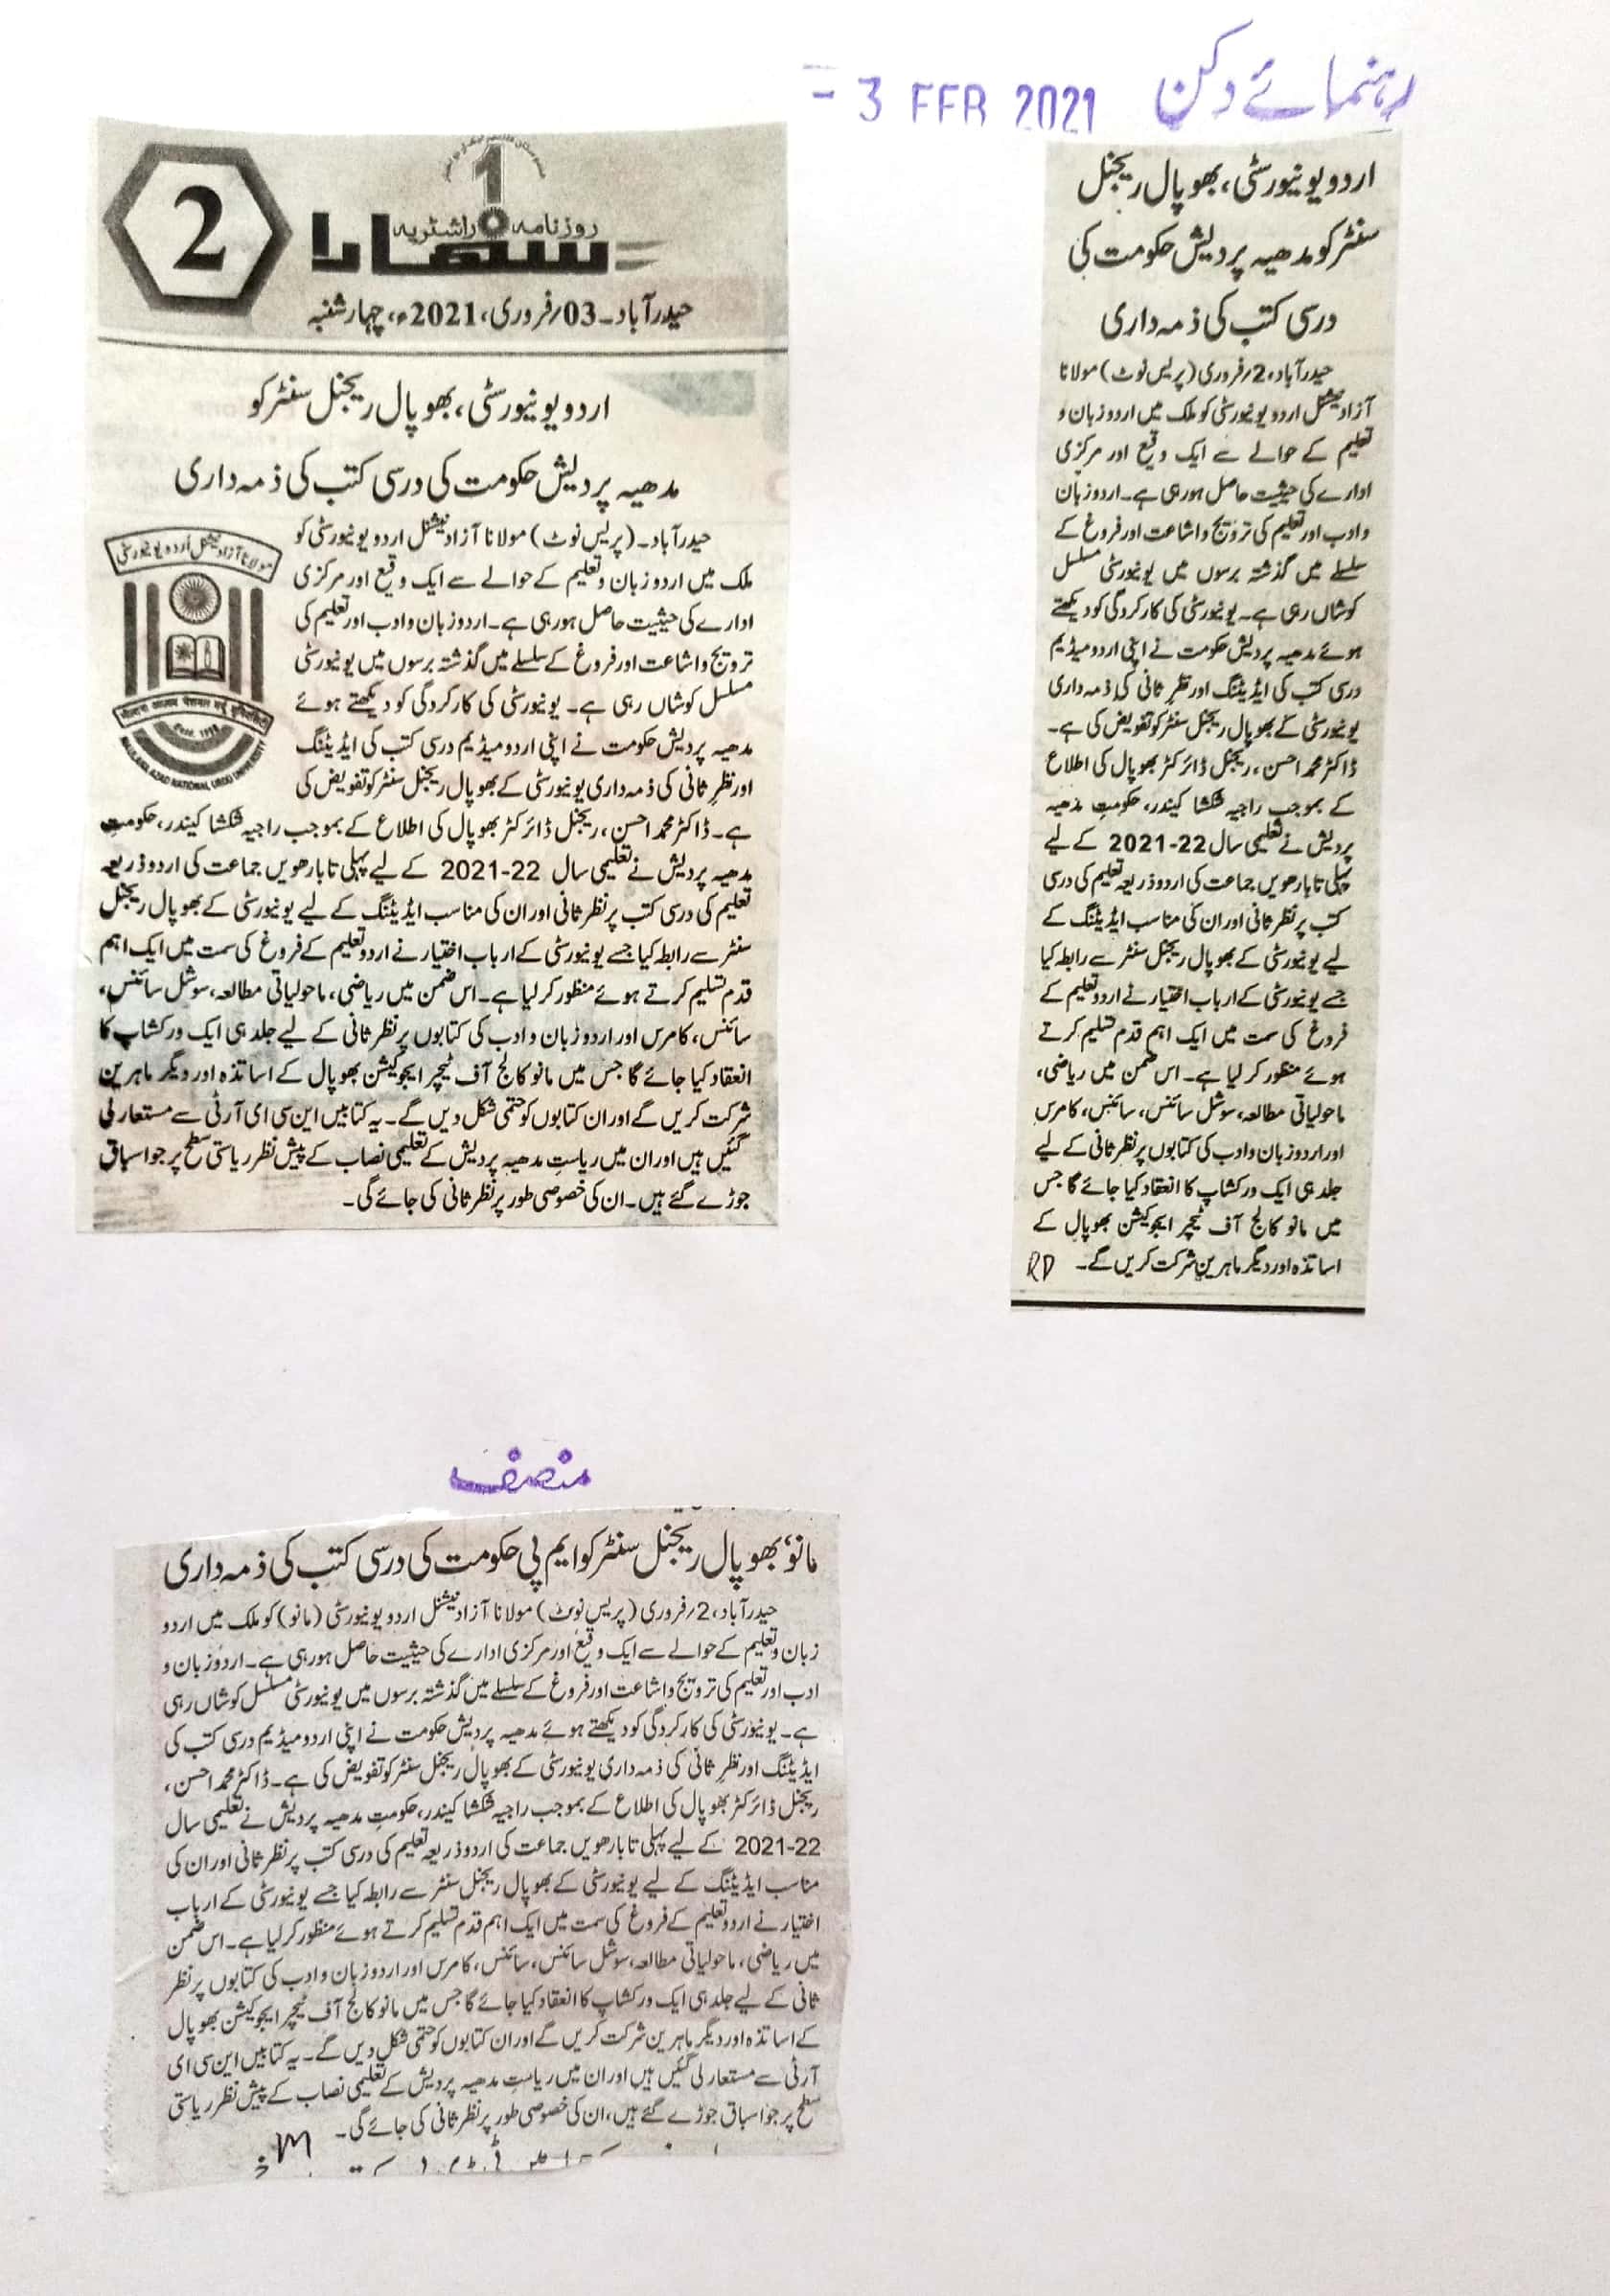 رہنمائے دکن
- 3 FEB 2021
2
1
روزنامہ راشٹریہ
سہارا
حیدرآباد۔03؍فروری،2021ء، چہارشنبہ
اردو یونیورسٹی، بھوپال ریجنل سنٹر کو
مدھیہ پردیش حکومت کی درسی کتب کی ذمہ داری
مولانا آزاد نیشنل اُردو یونیورسٹی
MAULANA AZAD NATIONAL URDU UNIVERSITY
حیدرآباد۔(پریس نوٹ) مولانا آزاد نیشنل اردو یونیورسٹی کو
ملک میں اردو زبان و تعلیم کے حوالے سے ایک وقیع اور مرکزی
ادارے کی حیثیت حاصل ہورہی ہے۔ اردو زبان و ادب اور تعلیم کی
ترویج و اشاعت اور فروغ کے سلسلے میں گذشتہ برسوں میں یونیورسٹی
مسلسل کوشاں رہی ہے۔ یونیورسٹی کی کارکردگی کو دیکھتے ہوئے
مدھیہ پردیش حکومت نے اپنی اردو میڈیم درسی کتب کی ایڈیٹنگ
اور نظرِ ثانی کی ذمہ داری یونیورسٹی کے بھوپال ریجنل سنٹر کو تفویض کی
ہے۔ ڈاکٹر محمد احسن، ریجنل ڈائرکٹر بھوپال کی اطلاع کے بموجب راجیہ شکشا کیندر، حکومتِ
مدھیہ پردیش نے تعلیمی سال 2021-22 کے لیے پہلی تا بارھویں جماعت کی اردو ذریعہ
تعلیم کی درسی کتب پر نظر ثانی اور ان کی مناسب ایڈیٹنگ کے لیے یونیورسٹی کے بھوپال ریجنل
سنٹر سے رابطہ کیا جسے یونیورسٹی کے ارباب اختیار نے اردو تعلیم کے فروغ کی سمت میں ایک اہم
قدم تسلیم کرتے ہوئے منظور کرلیا ہے۔ اس ضمن میں ریاضی، ماحولیاتی مطالعہ، سوشل سائنس،
سائنس، کامرس اور اردو زبان و ادب کی کتابوں پر نظر ثانی کے لیے جلد ہی ایک ورکشاپ کا
انعقاد کیا جائے گا جس میں مانو کالج آف ٹیچر ایجوکیشن بھوپال کے اساتذہ اور دیگر ماہرین
شرکت کریں گے اور ان کتابوں کو حتمی شکل دیں گے۔ یہ کتابیں این سی ای آر ٹی سے مستعار لی
گئیں ہیں اور ان میں ریاستِ مدھیہ پردیش کے تعلیمی نصاب کے پیش نظر ریاستی سطح پر جو اسباق
جوڑے گئے ہیں۔ ان کی خصوصی طور پر نظر ثانی کی جائے گی۔
اردو یونیورسٹی، بھوپال ریجنل
سنٹر کو مدھیہ پردیش حکومت کی
درسی کتب کی ذمہ داری
حیدرآباد،2؍فروری (پریس نوٹ) مولانا
آزاد نیشنل اردو یونیورسٹی کو ملک میں اردو زبان و
تعلیم کے حوالے سے ایک وقیع اور مرکزی
ادارے کی حیثیت حاصل ہورہی ہے۔ اردو زبان
و ادب اور تعلیم کی ترویج و اشاعت اور فروغ کے
سلسلے میں گذشتہ برسوں میں یونیورسٹی مسلسل
کوشاں رہی ہے۔ یونیورسٹی کی کارکردگی کو دیکھتے
ہوئے مدھیہ پردیش حکومت نے اپنی اردو میڈیم
درسی کتب کی ایڈیٹنگ اور نظرِ ثانی کی ذمہ داری
یونیورسٹی کے بھوپال ریجنل سنٹر کو تفویض کی ہے۔
ڈاکٹر محمد احسن، ریجنل ڈائرکٹر بھوپال کی اطلاع
کے بموجب راجیہ شکشا کیندر، حکومتِ مدھیہ
پردیش نے تعلیمی سال 2021-22 کے لیے
پہلی تا بارھویں جماعت کی اردو ذریعہ تعلیم کی درسی
کتب پر نظر ثانی اور ان کی مناسب ایڈیٹنگ کے
لیے یونیورسٹی کے بھوپال ریجنل سنٹر سے رابطہ کیا
جسے یونیورسٹی کے ارباب اختیار نے اردو تعلیم کے
فروغ کی سمت میں ایک اہم قدم تسلیم کرتے
ہوئے منظور کرلیا ہے۔ اس ضمن میں ریاضی،
ماحولیاتی مطالعہ، سوشل سائنس، سائنس، کامرس
اور اردو زبان و ادب کی کتابوں پر نظر ثانی کے لیے
جلد ہی ایک ورکشاپ کا انعقاد کیا جائے گا جس
میں مانو کالج آف ٹیچر ایجوکیشن بھوپال کے
اساتذہ اور دیگر ماہرین شرکت کریں گے۔ RD
منصف
مانو، بھوپال ریجنل سنٹر کو ایم پی حکومت کی درسی کتب کی ذمہ داری
حیدرآباد،2؍فروری (پریس نوٹ) مولانا آزاد نیشنل اردو یونیورسٹی (مانو) کو ملک میں اردو
زبان و تعلیم کے حوالے سے ایک وقیع اور مرکزی ادارے کی حیثیت حاصل ہورہی ہے۔ اردو زبان و
ادب اور تعلیم کی ترویج و اشاعت اور فروغ کے سلسلے میں گذشتہ برسوں میں یونیورسٹی مسلسل کوشاں رہی
ہے۔ یونیورسٹی کی کارکردگی کو دیکھتے ہوئے مدھیہ پردیش حکومت نے اپنی اردو میڈیم درسی کتب کی
ایڈیٹنگ اور نظرِ ثانی کی ذمہ داری یونیورسٹی کے بھوپال ریجنل سنٹر کو تفویض کی ہے۔ ڈاکٹر محمد احسن،
ریجنل ڈائرکٹر بھوپال کی اطلاع کے بموجب راجیہ شکشا کیندر، حکومتِ مدھیہ پردیش نے تعلیمی سال
2021-22 کے لیے پہلی تا بارھویں جماعت کی اردو ذریعہ تعلیم کی درسی کتب پر نظر ثانی اور ان کی
مناسب ایڈیٹنگ کے لیے یونیورسٹی کے بھوپال ریجنل سنٹر سے رابطہ کیا جسے یونیورسٹی کے ارباب
اختیار نے اردو تعلیم کے فروغ کی سمت میں ایک اہم قدم تسلیم کرتے ہوئے منظور کرلیا ہے۔ اس ضمن
میں ریاضی، ماحولیاتی مطالعہ، سوشل سائنس، سائنس، کامرس اور اردو زبان و ادب کی کتابوں پر نظر
ثانی کے لیے جلد ہی ایک ورکشاپ کا انعقاد کیا جائے گا جس میں مانو کالج آف ٹیچر ایجوکیشن بھوپال
کے اساتذہ اور دیگر ماہرین شرکت کریں گے اور ان کتابوں کو حتمی شکل دیں گے۔ یہ کتابیں این سی ای
آر ٹی سے مستعار لی گئیں ہیں اور ان میں ریاستِ مدھیہ پردیش کے تعلیمی نصاب کے پیش نظر ریاستی
سطح پر جو اسباق جوڑے گئے ہیں، ان کی خصوصی طور پر نظر ثانی کی جائے گی۔
M